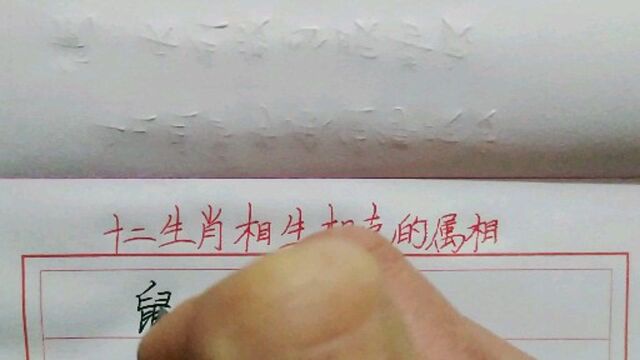 十二生肖相生相克的属相
鼠